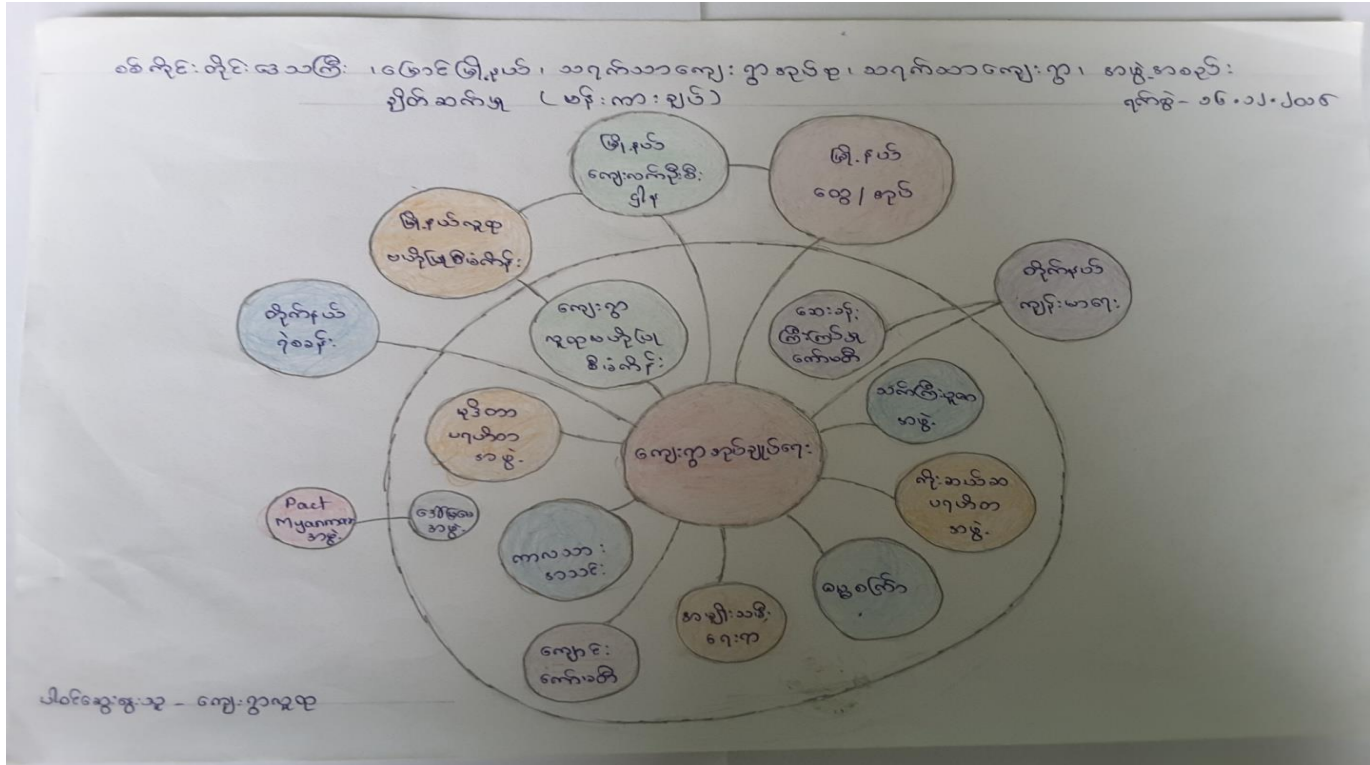 စစ်ကိုင်းတိုင်းဒေသကြီး ၊ မြောင်မြို့နယ် ၊ သရက်တောကျေးရွာအုပ်စု ၊ သရက်တောကျေးရွာ ၊ အဖွဲ့အစည်း
ချိတ်ဆက်မှု ( မန်းကားချပ် )
ရက်စွဲ - ၁၆.၁၂.၂၀၁၆
မြို့နယ်
ကျေးလက်ဦးစီး
ဌာန
မြို့နယ်
ထွေ / အုပ်
မြို့နယ်လူထု
ဗဟိုပြုစီမံကိန်း
တိုက်နယ်
ကျန်းမာရေး
တိုက်နယ်
ရဲစခန်း
ကျေးရွာ
လူထုဗဟိုပြု
စီမံကိန်း
ဆေးခန်း
ကြီးကြပ်မှု
ကော်မတီ
သက်ကြီးပူဇော်
အဖွဲ့
မုဒိတာ
ပရဟိတ
အဖွဲ့
ကျေးရွာအုပ်ချုပ်ရေး
ကိုးဆယ်ဆ
ပရဟိတ
အဖွဲ့
Pact
Myanmar
အဖွဲ့
အဖွဲ့
ကာလသား
အသင်း
ဓမ္မစကြာ
အမျိုးသမီး
ရေးရာ
ကျောင်း
ကော်မတီ
ပါဝင်ဆွေးနွေးသူ - ကျေးရွာလူထု